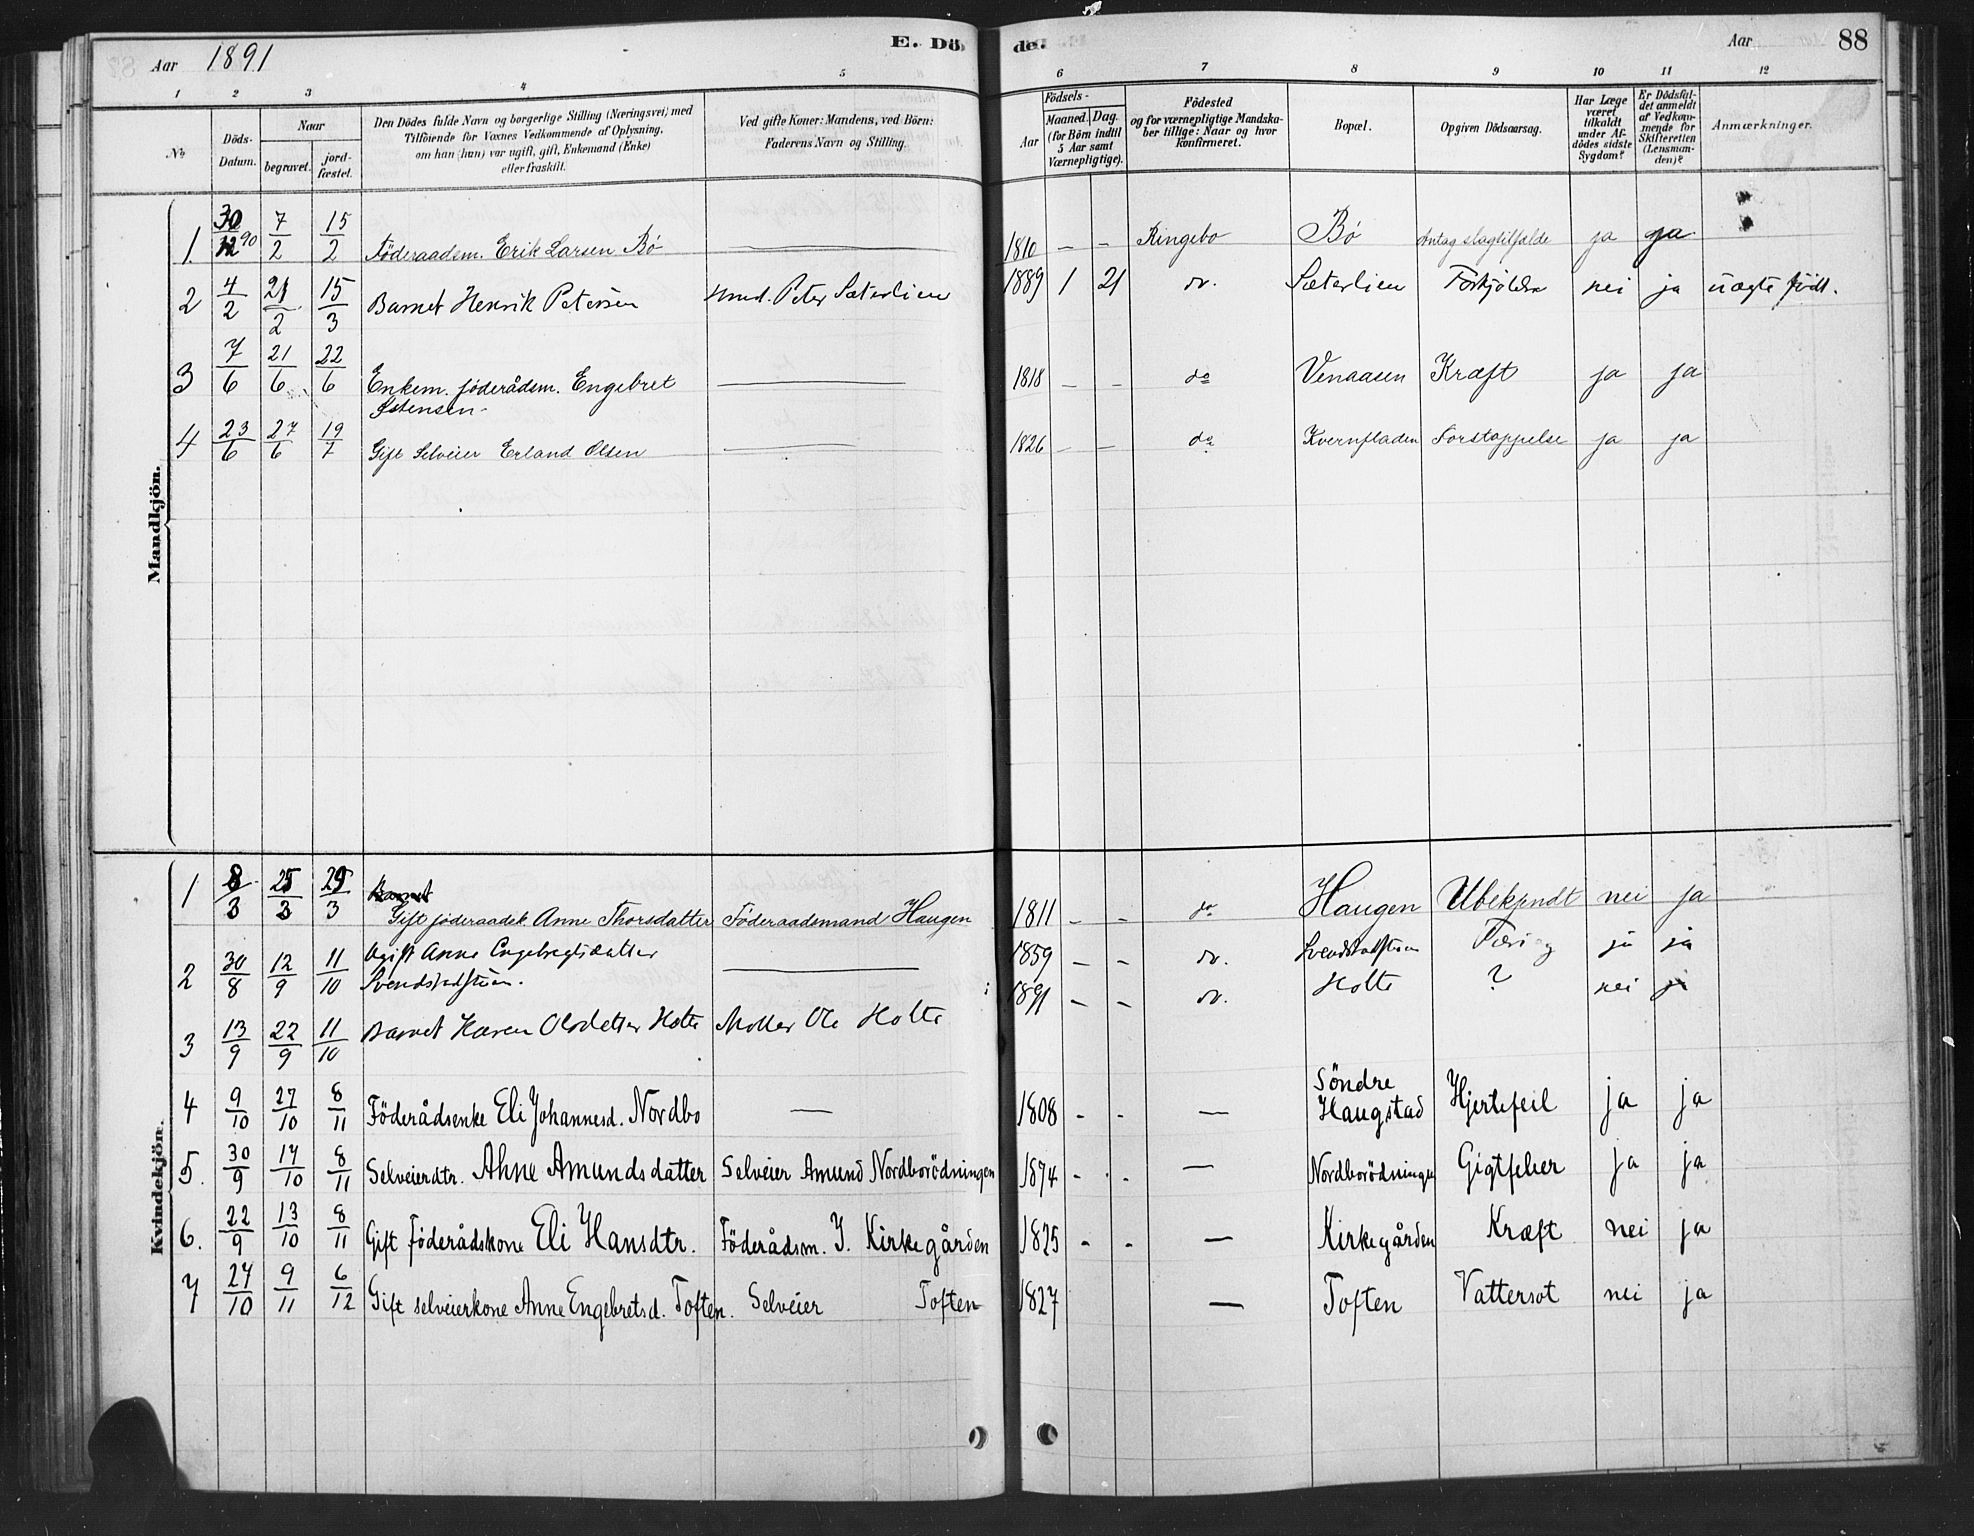 Aar 1891 E. Döde. Aar 88
1 2 3 4 5 6 7 8 9 10 11 12
No
Döds-Datum.
Naar
begravet.
jordfæstet.
Den Dödes fulde Navn og borgerlige Stilling (Næringsvei) med
Tilföiende for Voxnes Vedkommende af Oplysning,
om han (hun) var ugift, gift, Enkemand (Enke)
eller fraskilt.
Ved gifte Koner: Mandens, ved Börn:
Faderens Navn og Stilling.
Födsels-
Aar
Maaned. Dag.
(for Börn indtil
5 Aar samt
Værnepligtige).
Födested
og for værnepligtige Mandska-
ber tillige: Naar og hvor
konfirmeret.
Bopæl.
Opgiven Dödsaarsag.
Har Læge
været
tilkaldt
under Af-
dödes sidste
Sygdom?
Er Dödsfal-
det anmeldt
af Vedkom-
mende for
Skifteretten
(Lensman-
den)?
Anmærkninger.
Mandkjön.
1 30/12 90 7/2 15/2 Föderaadsm. Erik Larsen Bö — 1810 - - Ringebo Bö Antag slagtilfælde ja ja
2 4/2 21/2 15/3 Barnet Henrik Petersen Peter Sæterlien 1889 1 21 do. Sæterlien Forkjölelse nei ja uægte född.
3 7/6 21/6 22/6 Enkem. föderådsm. Engebret — 1818 - - do Venaasen Kræft ja ja
Østensen
4 23/6 27/6 19/7 Gift Selveier Erland Olsen — 1826 - - do Kvernfladen Forstoppelse ja ja
Kvindekjön.
1 8/3 25/3 29/3 Barnet
Gift föderaadsk. Anne Thorsdatter Föderaadsmand Haugen 1811 - - do Haugen Ubekjendt nei ja
2 30/8 12/9 11/10 Ugift Anne Engebregtsdatter — 1859 - - do. Svendstadstuen Tæring ja ja
Svendstadstuen.
3 13/9 22/9 11/10 Barnet Karen Olsdatter Holte Møller Ole Holte 1891 - - do. Holte ? nei ja
4 9/10 27/10 8/11 Föderådsenke Eli Johannesd. Nordbo — 1808 - - — Söndre
Haugstad Hjertefeil ja ja
5. 30/9 14/10 8/11 Selveierdtr. Anne Amundsdatter Selveier Amund Nordborödningen 1874 - - — Nordborödningen Gigtfeber ja ja
6. 22/9 13/10 8/11 Gift föderådskone Eli Hansdtr. Föderådsm. J. Kirkegården 1825 - - — Kirkegården Kræft nei ja
7 24/10 9/11 6/12 Gift selveierkone Anne Engebretsd. Toften. Selveier Toften 1827 — Toften Vattersot nei ja